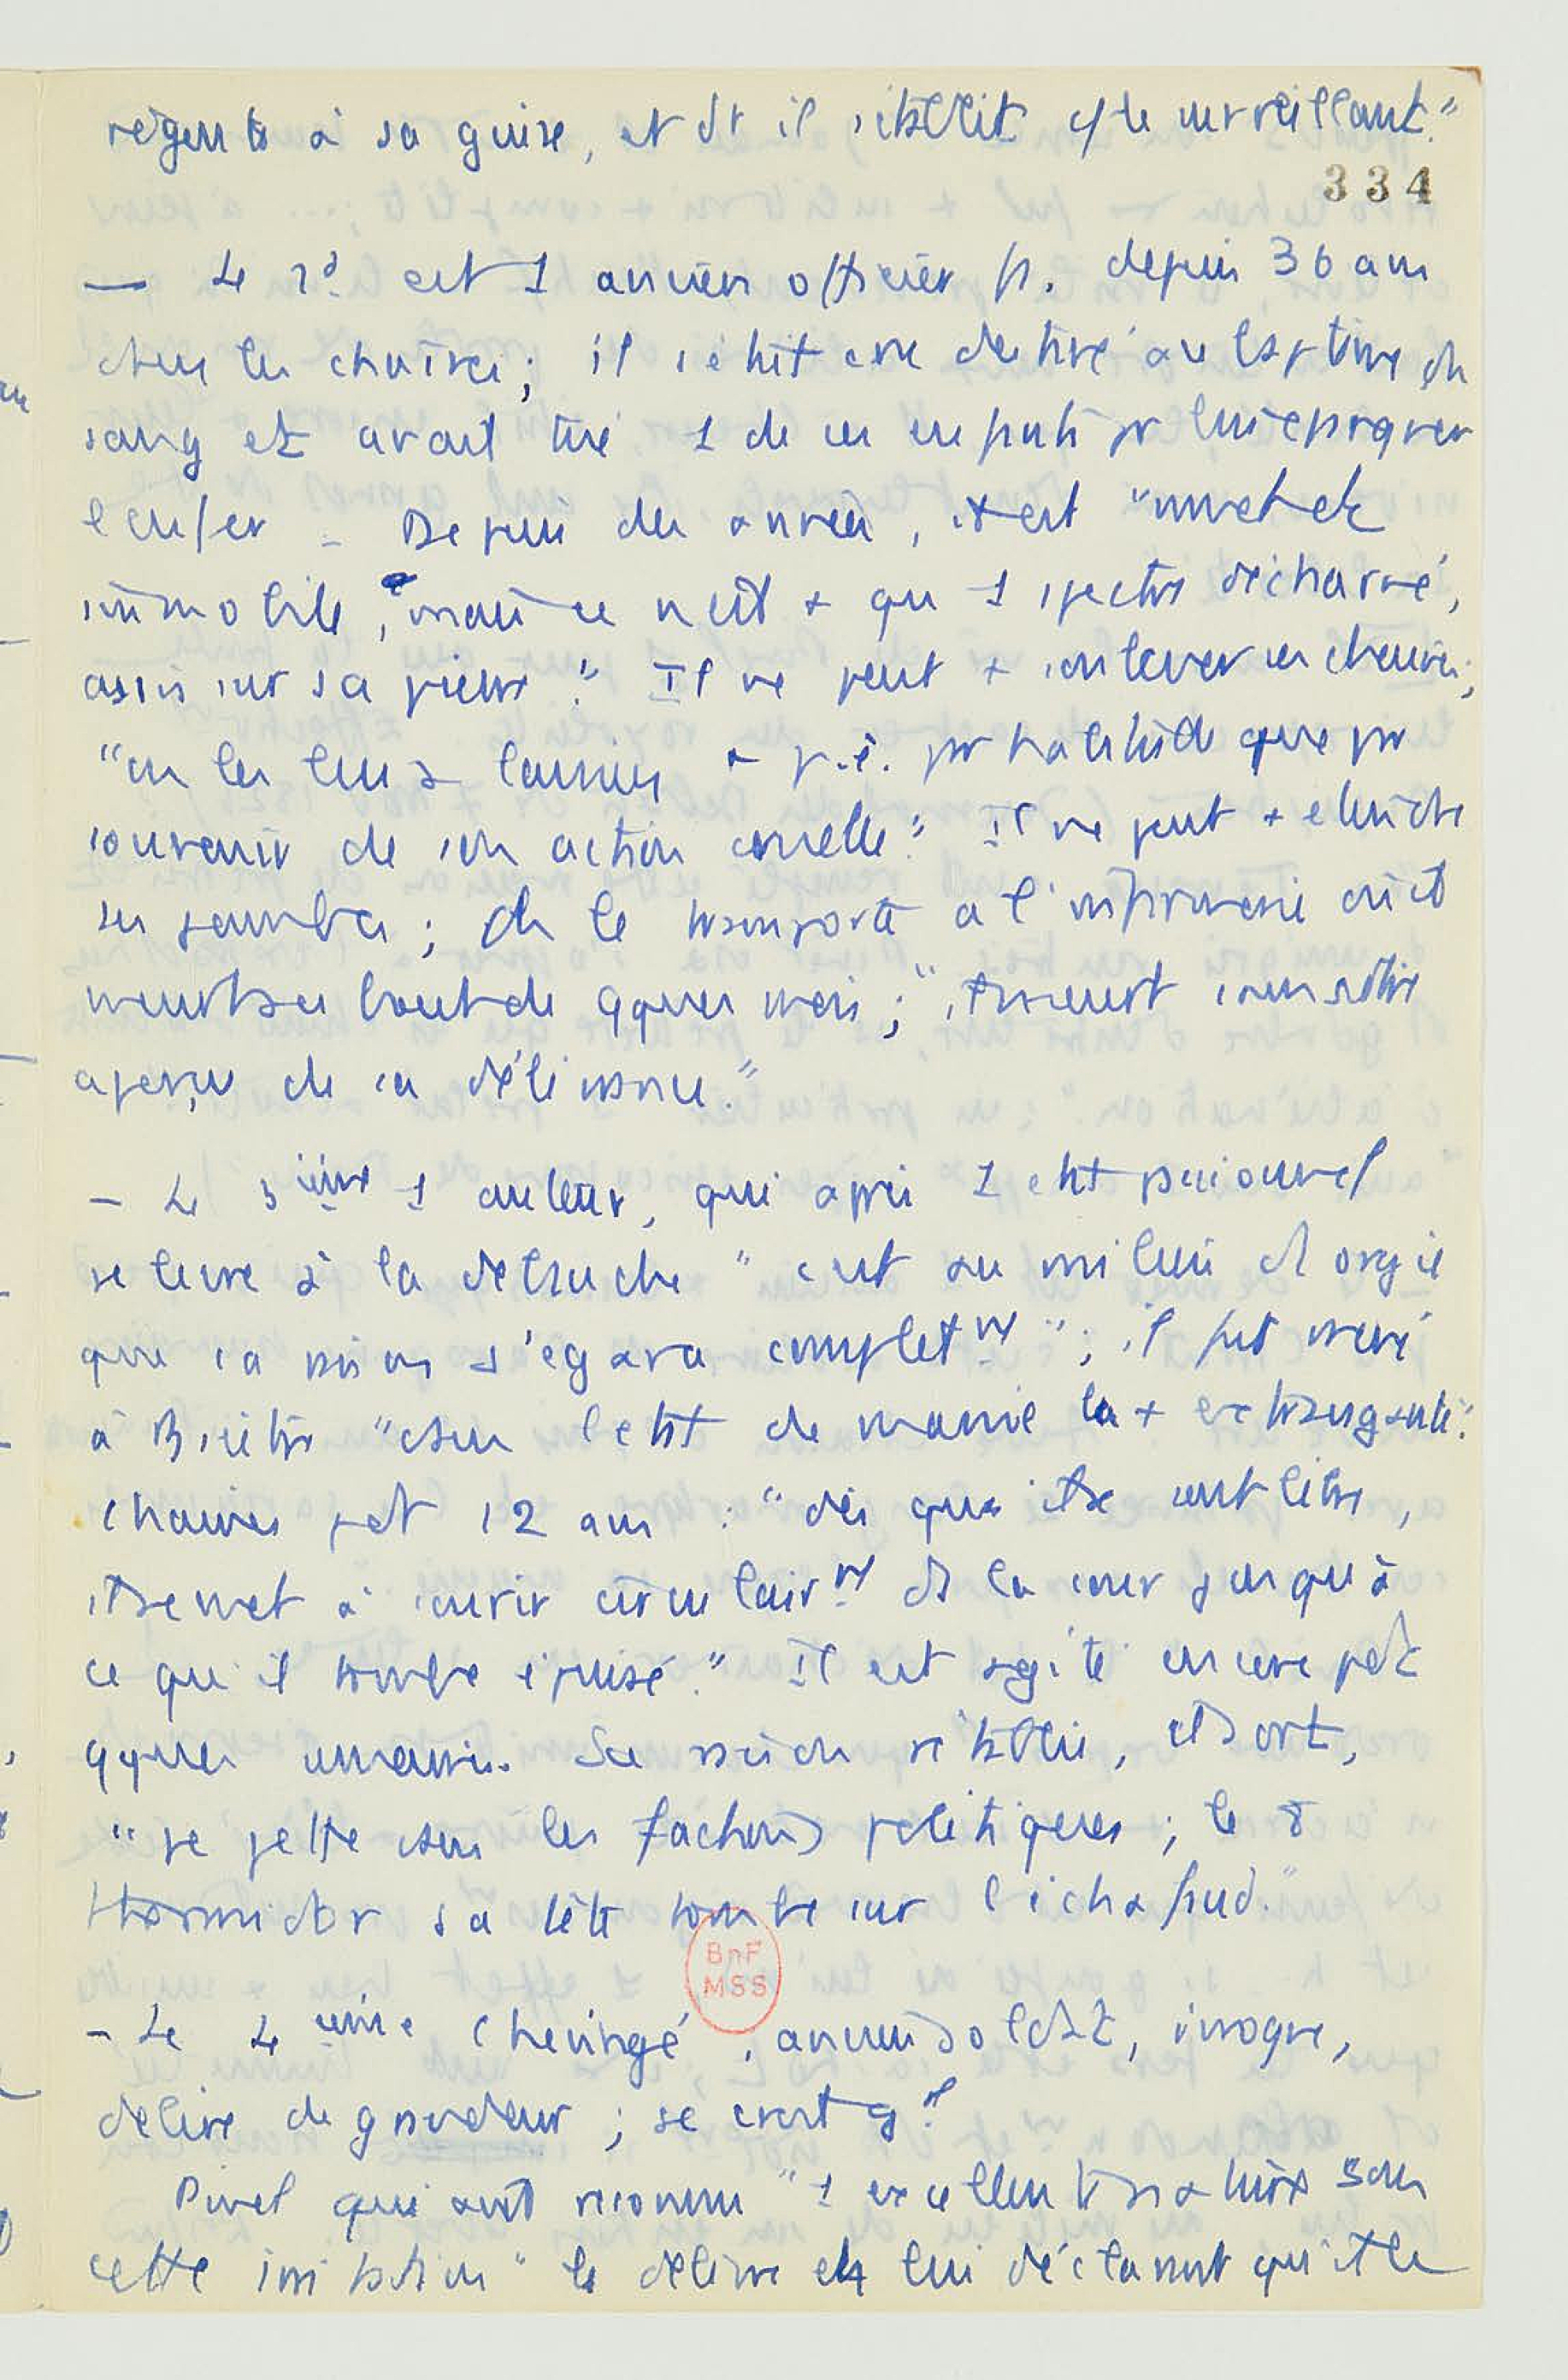 régente à sa guise, et dt il s'établit le surveillant."
334
— Le 2d est 1 ancien officier fr. depuis 36 ans
ds les chaînes; il s'était cru destiné au baptême du
sang et avait tué 1 de ses enfants pr lui épargner
l'enfer - Depuis des années, il est "muet et
immobile, ce n'est + qu 1 spectre décharné,
assis sur sa pierre." Il ne peut + soulever ses chaînes;
"on les lui a laissées + p.ê. pr habitude que pr
souvenir de son action cruelle." Il ne peut + étendre
ses jambes; On le transporte à l'infirmerie où il
meurt au bout de qques mois; "il meurt sans s'être
aperçu de sa délivrance."
- Le 3ième 1 auteur, qui après 1 état passionnel
se livre à la débauche "c'est au milieu d'orgie
que sa raison s'égara complètnt"; il fut mené
à Bicêtre "ds l'état de manie la + extravagante".
Chaînes pdt 12 ans : "dès qu'il se sent libre,
il se met à courir circulairnt ds la cour jusqu'à
ce qu'il tombe épuisé." Il est agité encore pdt
qques semaines. Sa raison rétablie, il sort,
"se jette ds les factions politiques; le 8
thermidor sa tête tombe sur l'échafaud."
BnF
MSS
- Le 4ième Chevingé, ancien soldat, ivrogne,
délire de grandeur; se croit gal
Pinel qui avait reconnu "1 excellente nature sous
cette irritation" le délivre en lui déclarant qu'il le